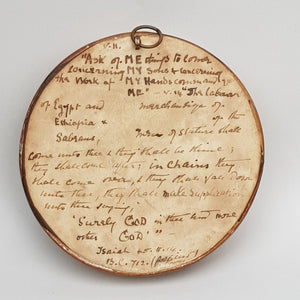 V.11.
"Ask of ME things to come
concerning MY Sons & concerning
the Work of MY Hands command ye
ME" - V.14 "The Labour
of Egypt and merchandise of
Ethiopia & of the
Sabeans, Men of stature shall
come unto thee & they shall be thine;
they shall come after; in Chains they
shall come over, & they shall fall down
unto thee, they shall make supplication
unto thee saying;
"Surely GOD is thee and none
other GOD" -
Isaiah 45.11.14.
B.C. 712.